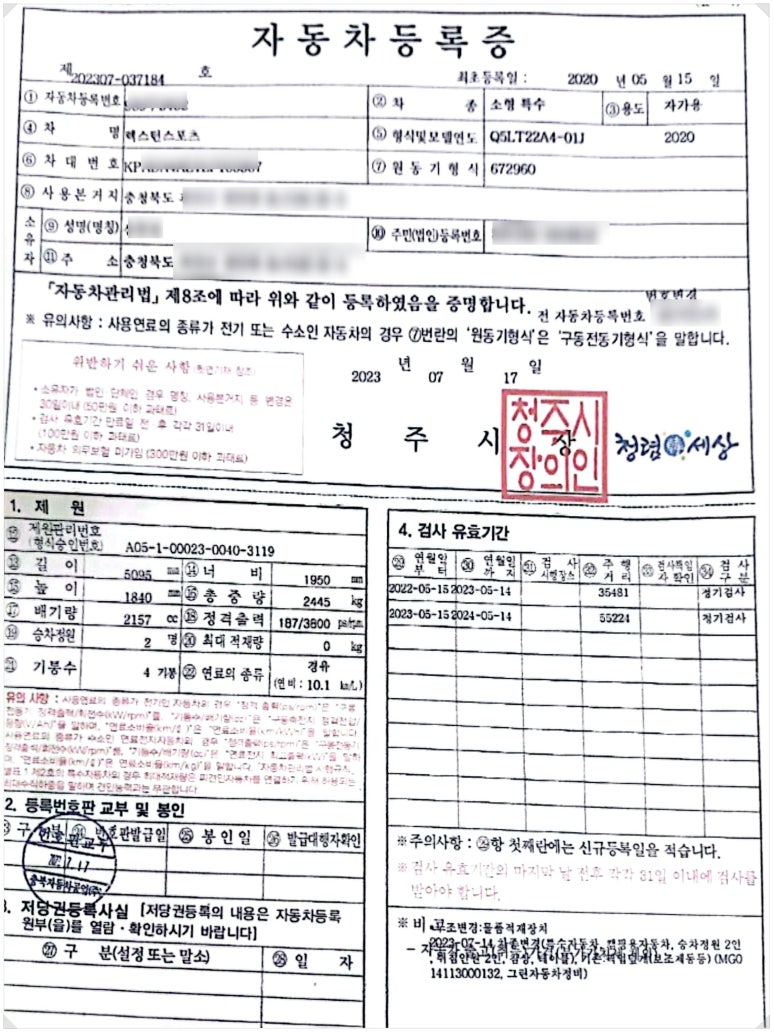 자동차등록증
제 202307-037184 호 최초등록일 : 2020 년 05 월 15 일
① 자동차등록번호 ② 차 종 소형 특수 ③용도 자가용
④ 차 명 렉스턴스포츠 ⑤ 형식및모델연도 Q5LT22A4-01J 2020
⑥ 차 대 번 호 ⑦ 원 동 기 형 식 672960
⑧ 사 용 본 거 지 충청북도
소유자 ⑨ 성명(명칭) ⑩ 주민(법인)등록번호
⑪ 주 소 충청북도
「자동차관리법」 제8조에 따라 위와 같이 등록하였음을 증명합니다.
번호변경
전 자동차등록번호
※ 유의사항 : 사용연료의 종류가 전기 또는 수소인 자동차의 경우 ⑦번란의 '원동기형식'은 '구동전동기형식'을 말합니다.
위반하기 쉬운 사항
• 소유자가 법인 단체인 경우 명칭, 사용본거지 등 변경은
30일이내 (50만원 이하 과태료)
• 검사 유효기간 만료일 전 후 각각 31일이내
(100만원 이하 과태료)
• 자동차 의무보험 미가입 (300만원 이하 과태료)
2023 년 07 월 17 일
청 주 시 장
청주시
장의인
청렴 세상
1. 제 원
⑫ 제원관리번호
(형식승인번호) A05-1-00023-0040-3119
⑬ 길 이 5095 mm ⑭ 너 비 1950 mm
⑮ 높 이 1840 mm ⑯ 총 중 량 2445 kg
⑰ 배기량 2157 cc ⑱ 정격출력 187/3800 ps/rpm
⑲ 승차정원 2 명 ⑳ 최대 적재량 0 kg
㉑ 기통수 4 기통 ㉒ 연료의 종류 경유
(연비 : 10.1 km/L)
유의 사항 : 사용연료의 종류가 전기인 자동차의 경우
2. 등록번호판 교부 및 봉인
구 분 ㉔ 번호판발급일 ㉕ 봉인일 ㉖ 발급대행자확인
번호판교부
7.17
충북자동차공업(주)
3. 저당권등록사실 [저당권등록의 내용은 자동차등록
원부(을)를 열람 · 확인하시기 바랍니다]
㉗ 구 분(설정 또는 말소) ㉘ 일 자
4. 검사 유효기간
㉙ 연월일부터 ㉚ 연월일까지 ㉛ 검사시행장소 ㉜ 주행거리 ㉝ 검사책임자확인 ㉞ 검사구분
2022-05-15 2023-05-14 35481 정기검사
2023-05-15 2024-05-14 55224 정기검사
※주의사항 : ㉙항 첫째란에는 신규등록일을 적습니다.
※검사 유효기간의 마지막 날 전후 각각 31일 이내에 검사를
받아야 합니다.
※ 비 고
•구조변경:물품적재장치
2023-07-14 차종변경(특수자동차, 캠핑용자동차, 승차정원 2인
(보조제동등) (MGO
14113000132, 그린자동차정비)